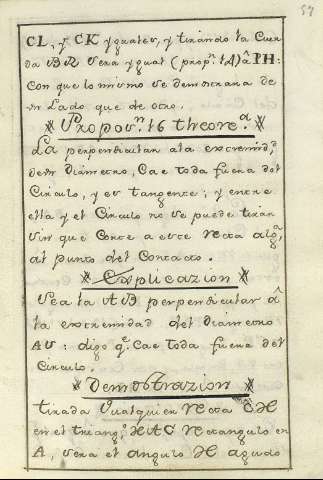 57
CL, y CK yguales, y tirando la Cuer
da BR sera ygual (prop.n 14) â PH:
Con que lo mismo se demostrara de
un Lado que de otro.
Propos.n 16 theore.a
La perpendicular ala extremid.d
de un diametro, Cae toda fuera del
Circulo, y es tangente; y entre
ella y el Circulo no se puede tirar
sin que Corte a este recta alg.a
al punto del Contacto.
Explicazion
Sea la AB perpendicular â
la extremidad del diametro
digo q.e Cae toda fuera del
Circulo.
Demostrazion
tirada qualquier recta
en el triang.o rectangulo en
A, sera el angulo agudo